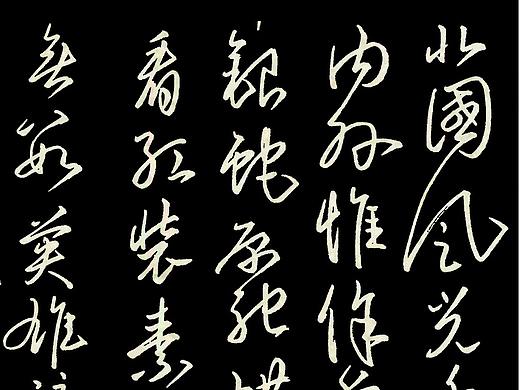 北國風光
内外惟余
銀蛇原馳
看紅裝素
無數英雄